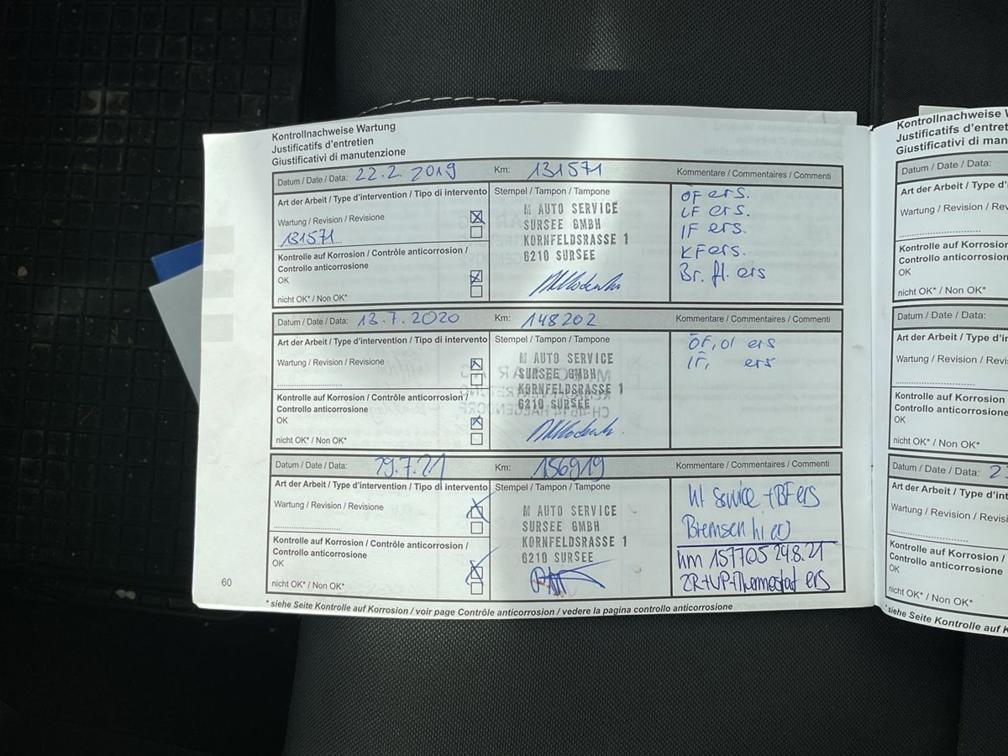 Kontrollnachweise Wartung
Justificatifs d'entretien
Giustificativi di manutenzione
Datum / Date / Data: 22.2.2019 Km: 131571 Kommentare / Commentaires / Commenti
Art der Arbeit / Type d'intervention / Tipo di intervento Stempel / Tampon / Tampone
Wartung / Revision / Revisione
131571
Kontrolle auf Korrosion / Contrôle anticorrosion /
Controllo anticorrosione
OK
nicht OK* / Non OK*
M AUTO SERVICE
SURSEE GMBH
KORNFELDSRASSE 1
6210 SURSEE
ÖF ers.
LF ers.
IF ers.
KF ers.
Br. fl. ers
Datum / Date / Data: 13.7.2020 Km: 148202 Kommentare / Commentaires / Commenti
Art der Arbeit / Type d'intervention / Tipo di intervento Stempel / Tampon / Tampone
Wartung / Revision / Revisione
Kontrolle auf Korrosion / Contrôle anticorrosion /
Controllo anticorrosione
OK
nicht OK* / Non OK*
M AUTO SERVICE
SURSEE GMBH
KORNFELDSRASSE 1
6210 SURSEE
ÖF, Öl ers
IF, ers
Datum / Date / Data: 29.7.21 Km: 156919 Kommentare / Commentaires / Commenti
Art der Arbeit / Type d'intervention / Tipo di intervento Stempel / Tampon / Tampone
Wartung / Revision / Revisione
Kontrolle auf Korrosion / Contrôle anticorrosion /
Controllo anticorrosione
OK
nicht OK* / Non OK*
M AUTO SERVICE
SURSEE GMBH
KORNFELDSRASSE 1
6210 SURSEE
Service + BF ers
Bremsen hi
km 157705 24.8.21
ZR+WP+Thermostat ers
60
* siehe Seite Kontrolle auf Korrosion / voir page Contrôle anticorrosion / vedere la pagina controllo anticorrosione
Kontrollnachweise
Justificatifs d'entretien
Giustificativi di
Datum / Date / Data:
Art der Arbeit / Type
Wartung / Revision
Kontrolle auf
Controllo anticorrosione
OK
nicht OK* / Non OK*
Datum / Date / Data:
Art der Arbeit / Type d'
Wartung / Revision
Kontrolle auf Korrosion
Controllo anticorrosione
OK
nicht OK* / Non OK*
Datum / Date / Data: 2
Art der Arbeit / Type d'
Wartung / Revision
Kontrolle auf Korrosion /
Controllo anticorrosione
OK
nicht OK* / Non OK*
* siehe Seite Kontrolle auf